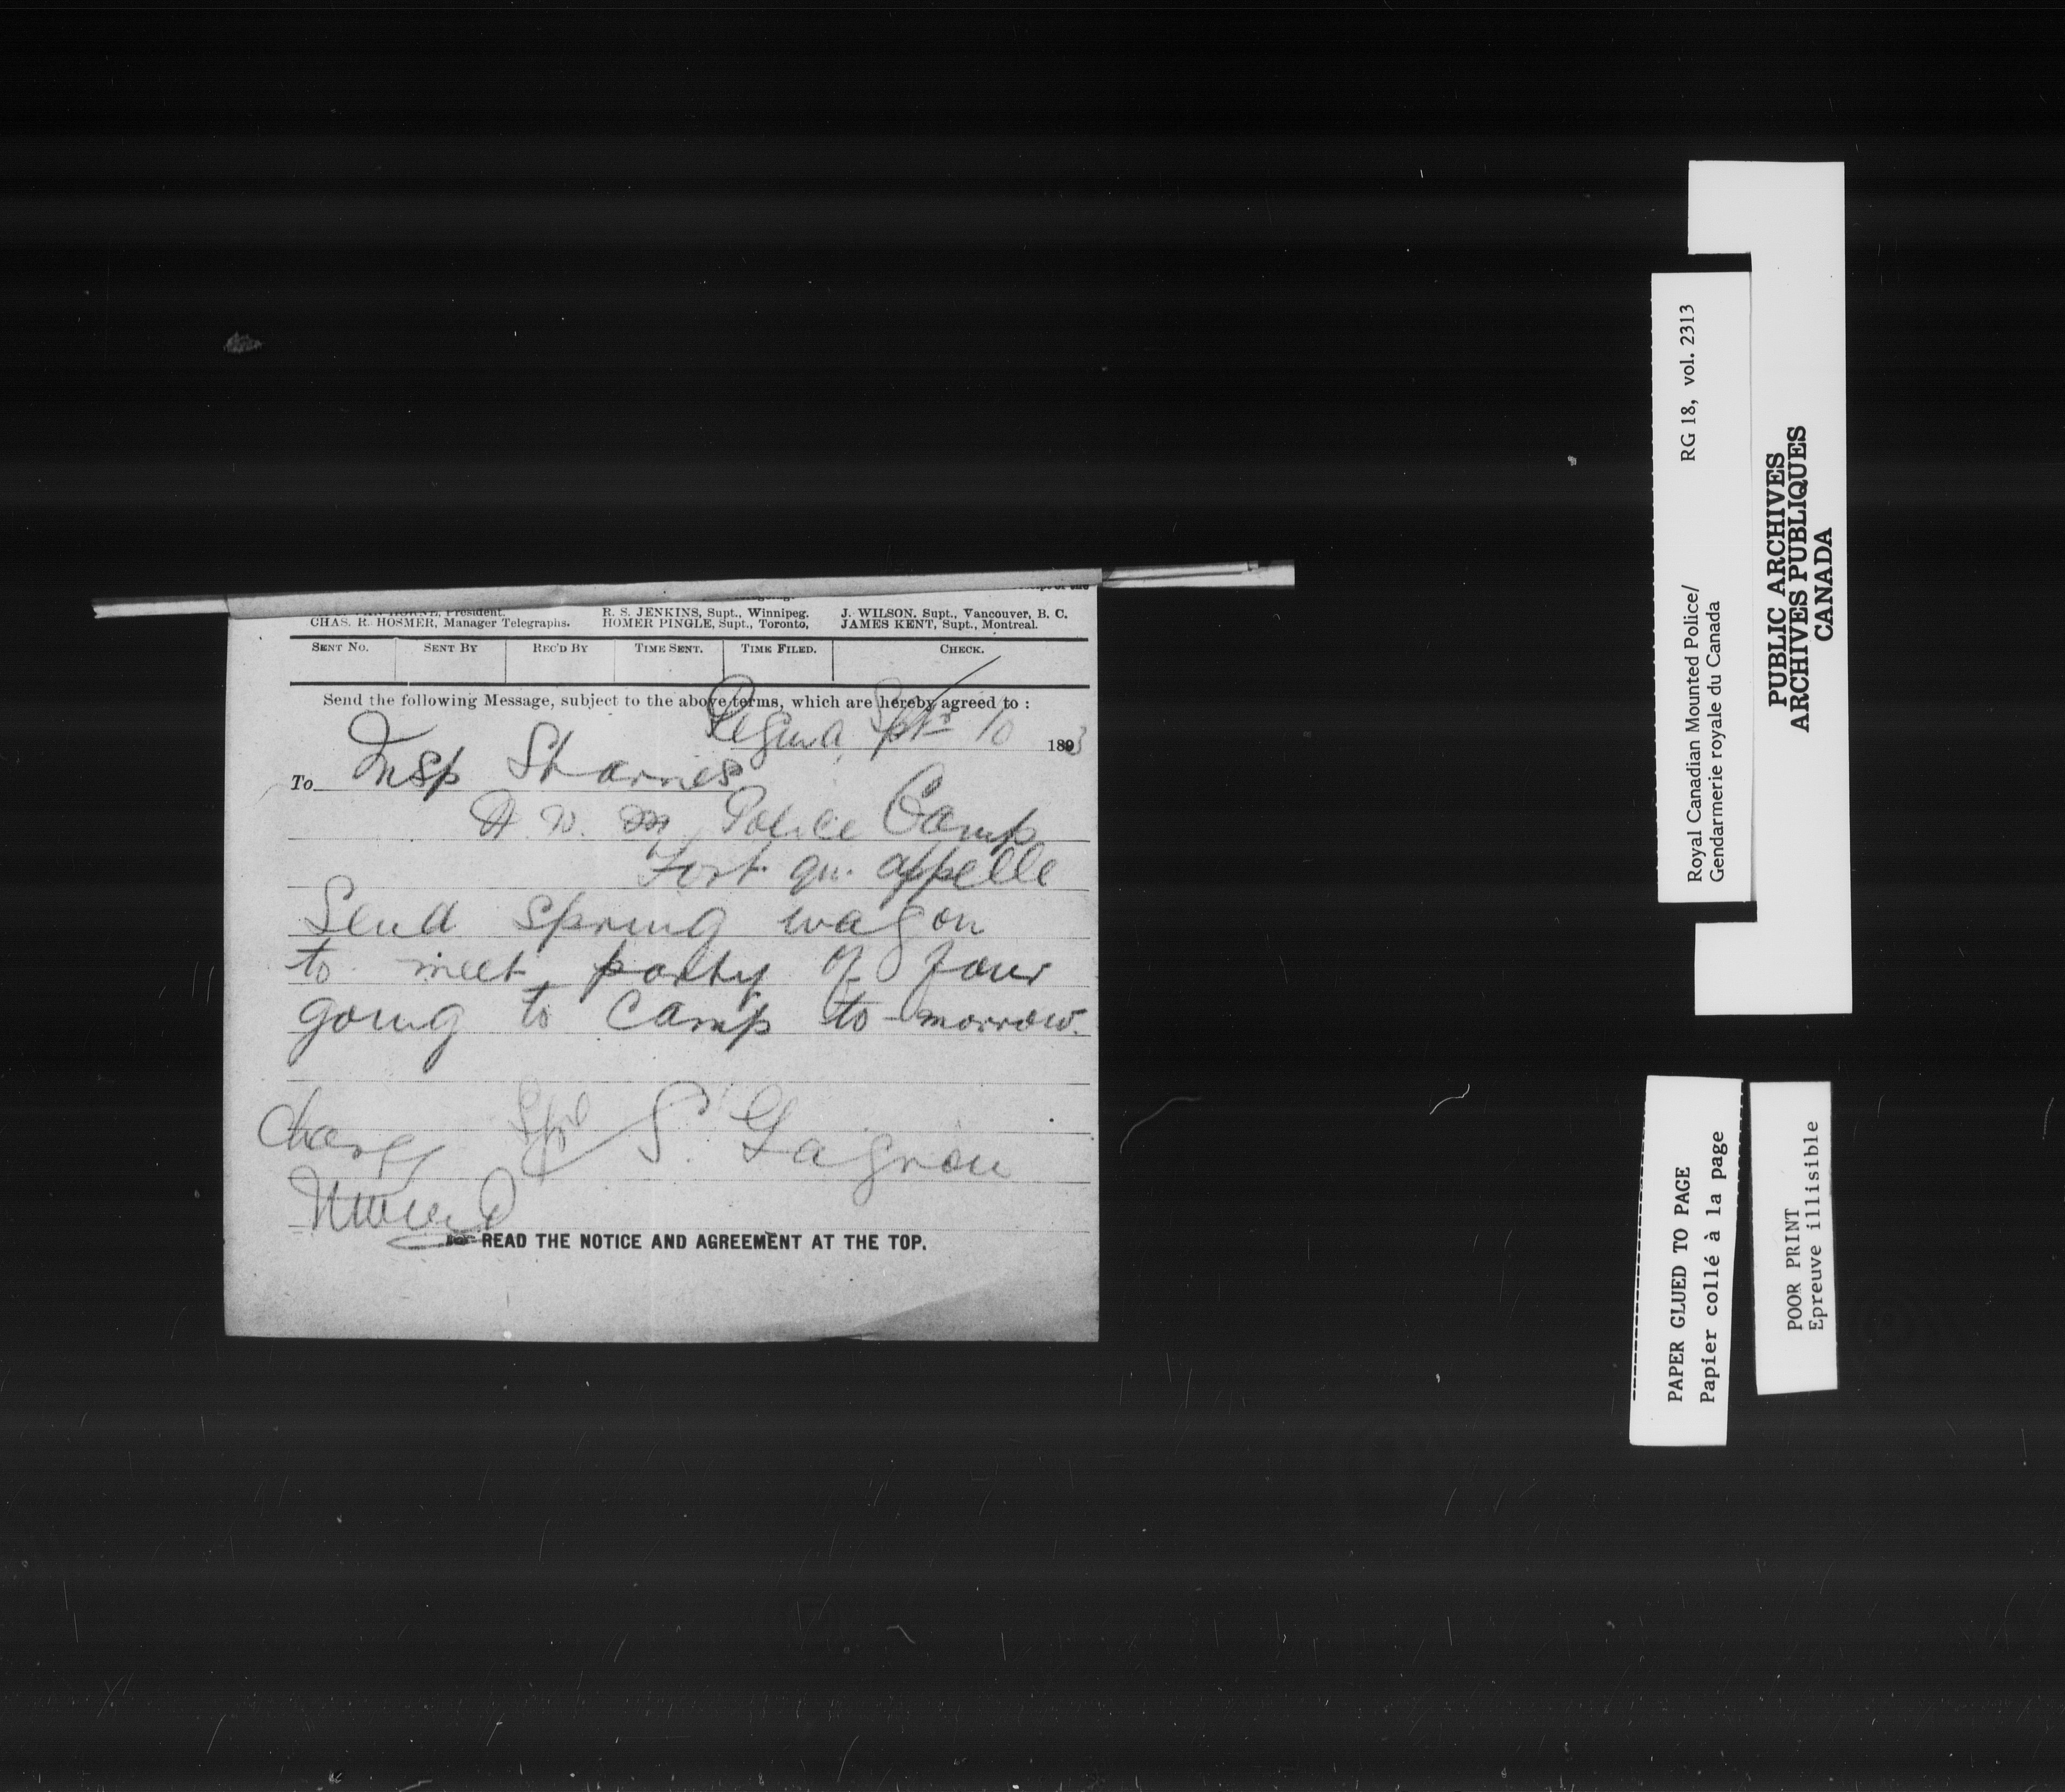 HORNE, President.
CHAS. R. HOSMER, Manager Telegraphs.
R. S. JENKINS, Supt., Winnipeg.
HOMER PINGLE, Supt., Toronto,
J. WILSON, Supt., Vancouver, B. C.
JAMES KENT, Supt., Montreal.
SENT NO. SENT BY REC'D BY TIME SENT. TIME FILED. CHECK.
Send the following Message, subject to the above terms, which are hereby agreed to :
Regina Sept 10 1893
To Insp Starnes
N. W. M Police Camp
Fort qu. appelle
Send spring wagon
to meet party of four
going to Camp to-morrow.
Charge S. Gagnon
READ THE NOTICE AND AGREEMENT AT THE TOP.
Royal Canadian Mounted Police/ RG 18, vol. 2313
Gendarmerie royale du Canada
PUBLIC ARCHIVES
ARCHIVES PUBLIQUES
CANADA
PAPER GLUED TO PAGE
Papier collé à la page
POOR PRINT
Epreuve illisible